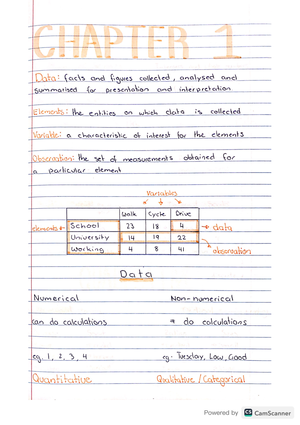 CHAPTER 1
Data: facts and figures collected, analysed and
summarised for presentation and interpretation
Elements: the entities on which data is collected
Variable: a characteristic of interest for the elements
Observation: the set of measurements obtained for
a particular element
Variables
Walk Cycle Drive
elements School 23 18 4 → data
University 14 19 22
Working 4 8 41 observation
Data
Numerical Non-numerical
can do calculations do calculations
eg. 1, 2, 3, 4 eg. Tuesday, Low, Good
Quantitative Qualitative / Categorical
Powered by CS CamScanner